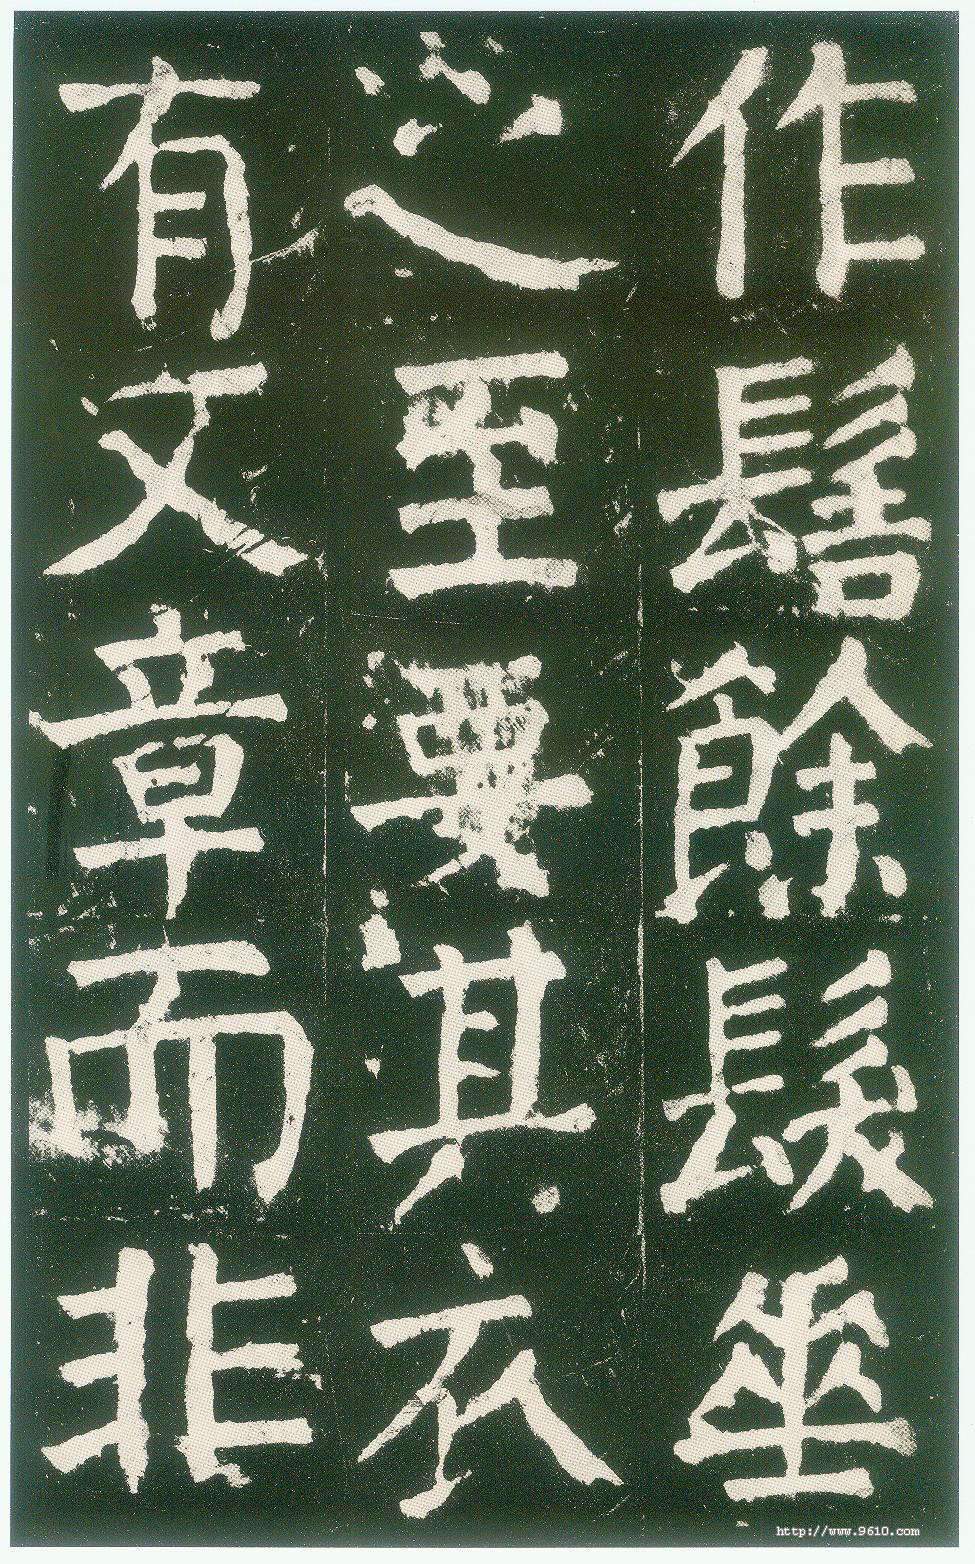 作髻餘髮垂
之至要其衣
有文章而非
http://www.9610.com